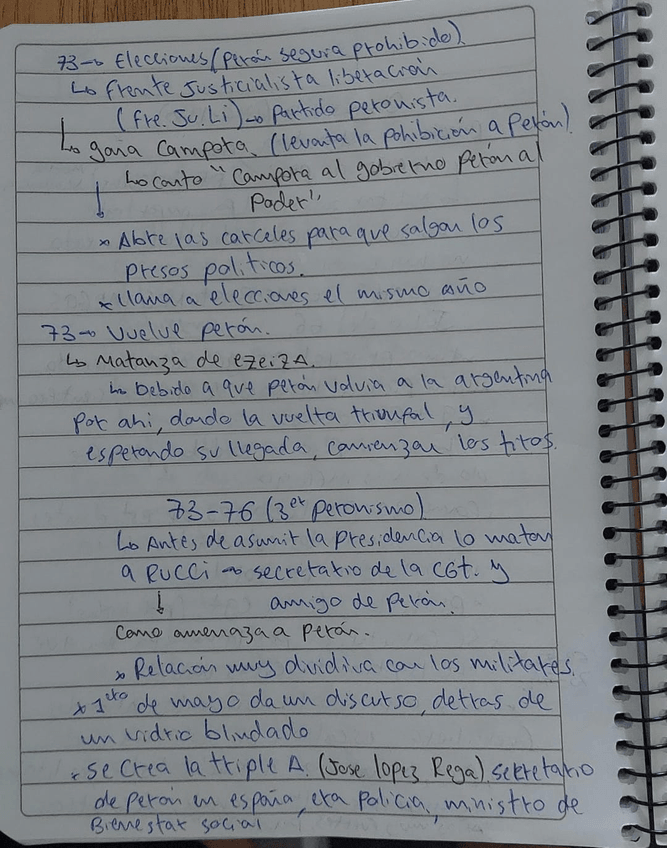 73→ Elecciones (Perón seguia prohibido)
↳ Frente Justicialista liberación
(Fre.Ju.Li)→ Partido peronista.
↳ gana Campora. (levanta la pohibición a Perón)
↳ canto "Campora al gobierno Perón al
Poder"
* Abre las carceles para que salgan los
presos politicos.
* llama a elecciones el mismo año
73→ Vuelve perón.
↳ Matanza de ezeiza.
↳ Debido a que perón volvia a la argentina
por ahi, dando la vuelta triunfal, y
esperando su llegada, comienzan los tiros.
73-76 (3er Peronismo)
↳ Antes de asumir la Presidencia lo matan
a Rucci → secretario de la CGT. y
↓ amigo de Perón.
como amenaza a Perón.
* Relación muy dividiva con los militares.
* 1ero de mayo da un discurso, detras de
un vidrio blindado
* Se crea la triple A. (Jose lopez Rega) secretario
de Perón en españa, era Policia, ministro de
Bienestar social